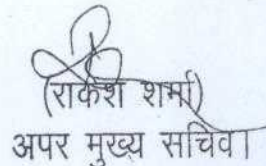 (राकेश शर्मा)
अपर मुख्य सचिव।